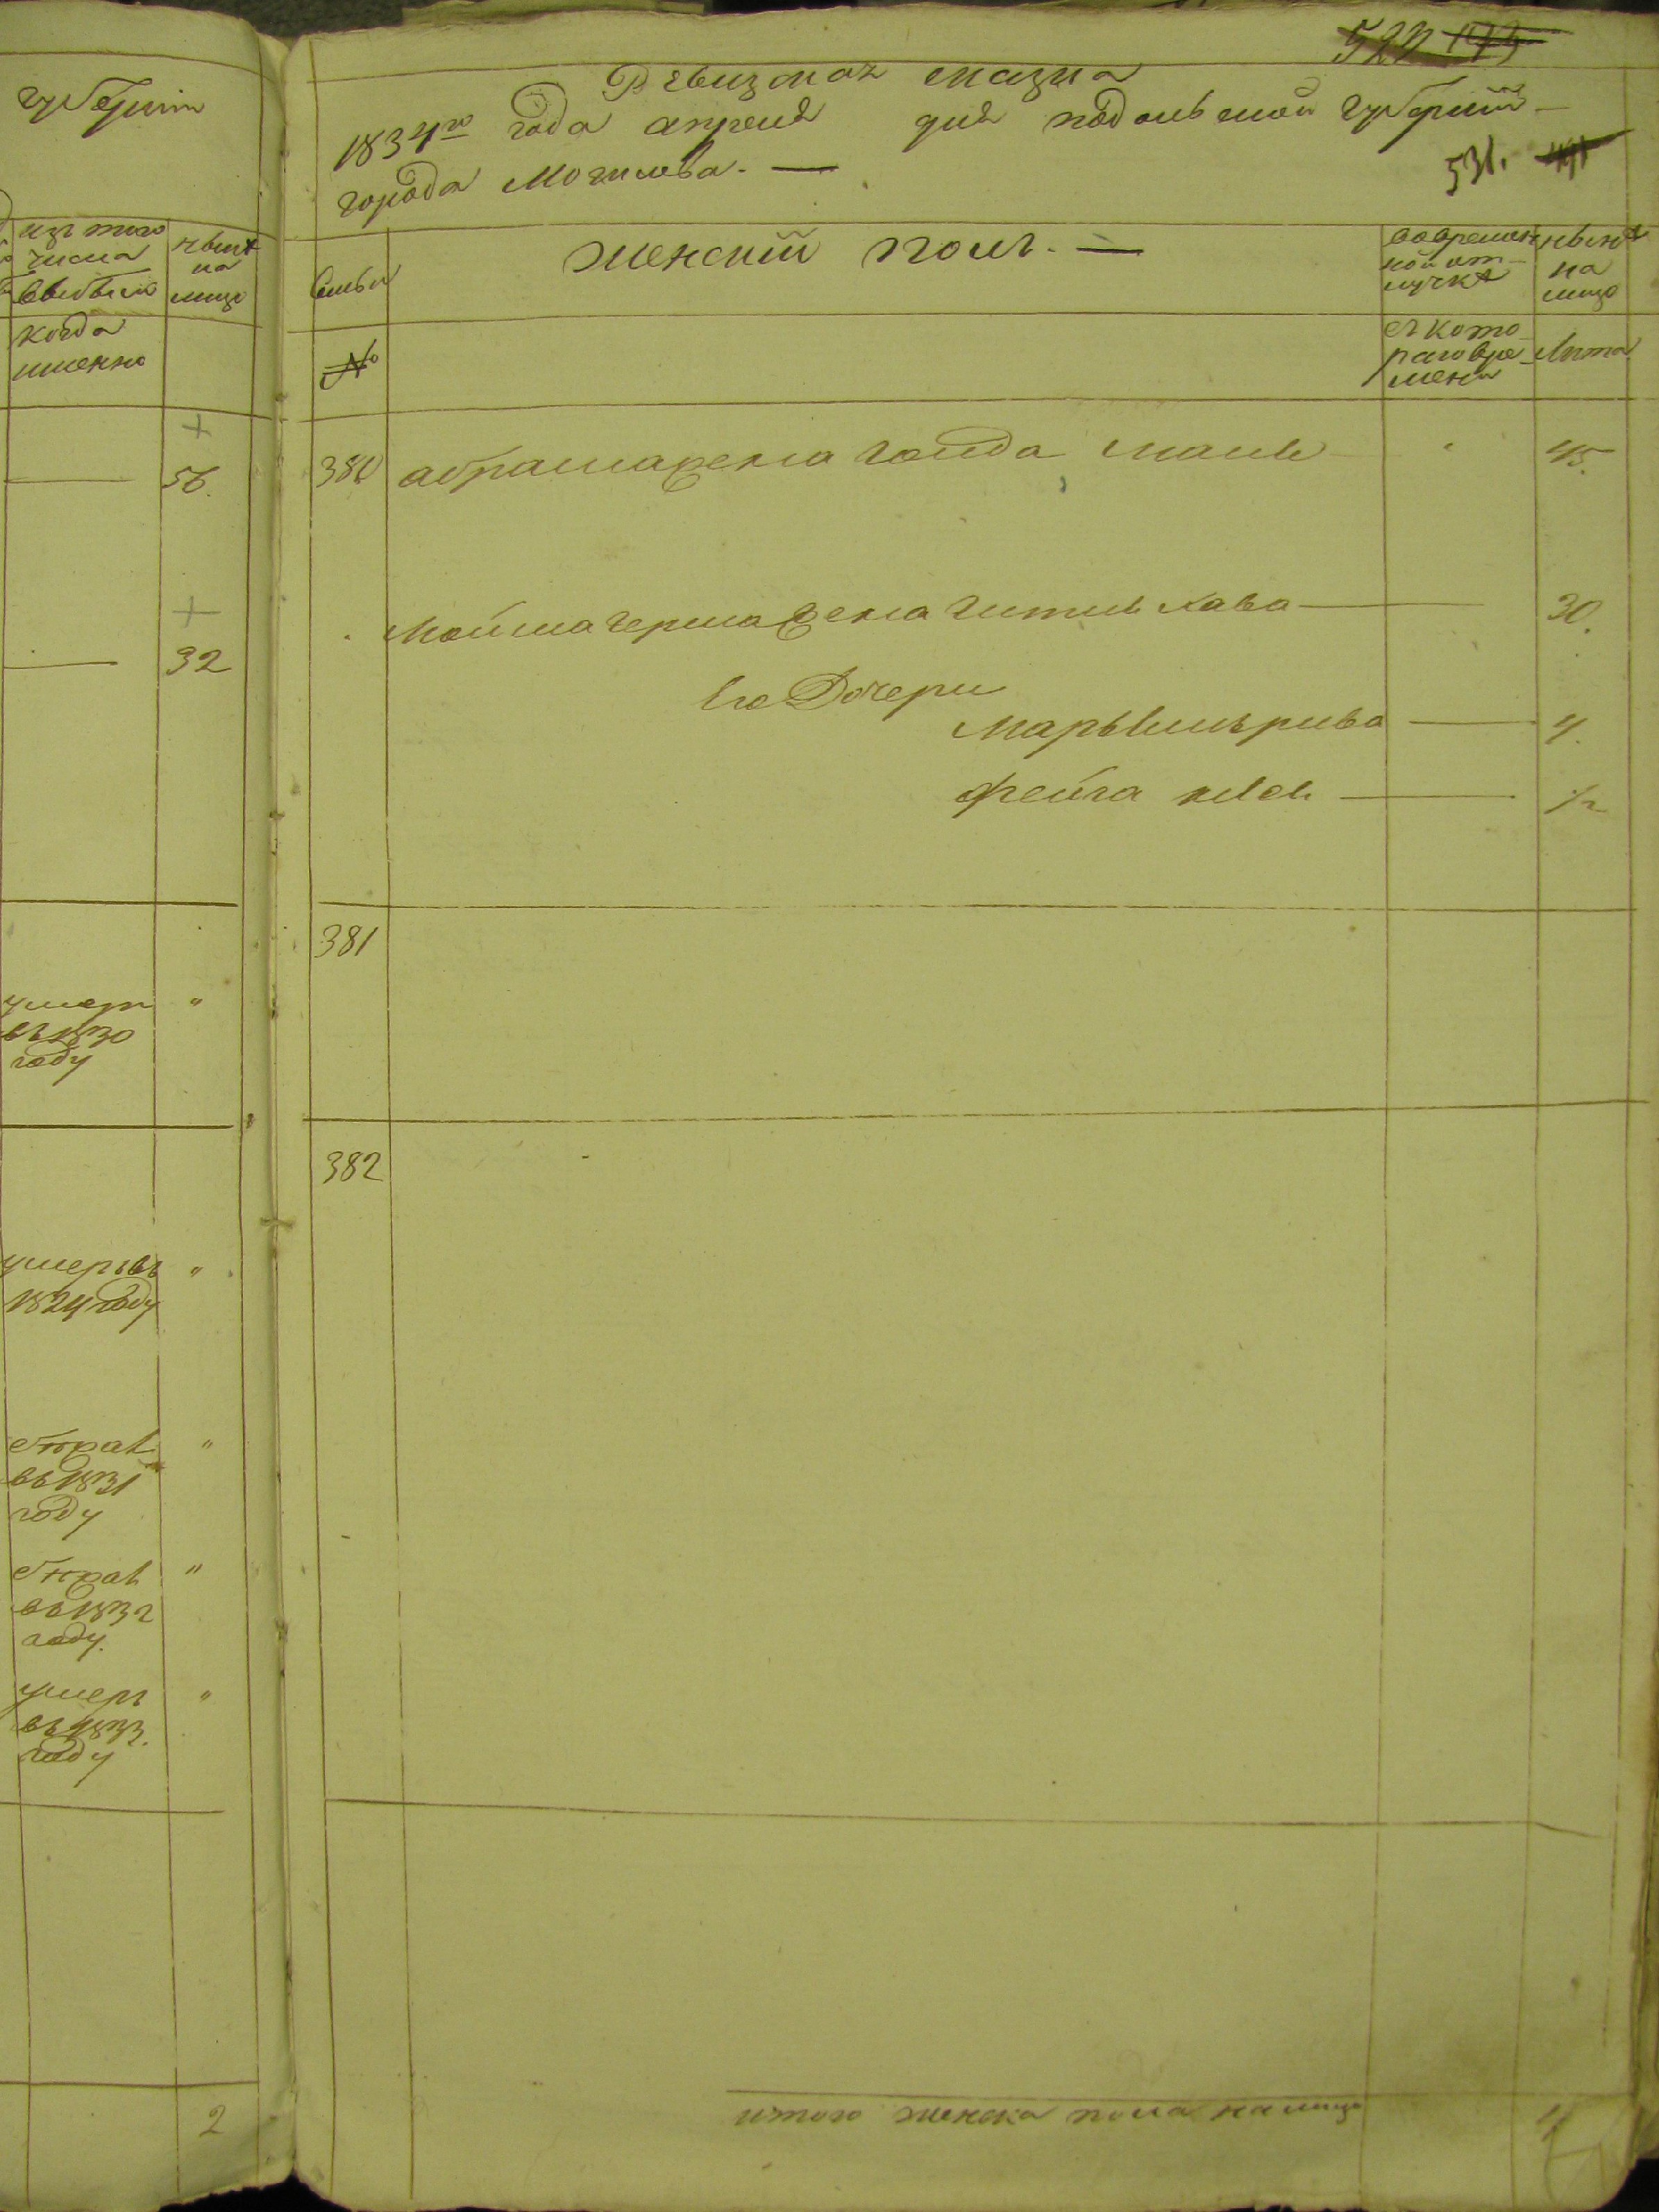 губернiи
изъ того
числа
выбыло
ныне
на
лицо
когда
именно
56.
32
умеръ
въ 1830
году
"
умеръ въ
1824 году
"
въ 1831
году
"
въ 1832
году.
"
умеръ
въ 1833.
году
"
2
Ревизская сказка
1834го года апреля дня подольской губернiи
города Могилева. —
531.
Семьи
Женскiй полъ. —
вовремен
ной от
лучке
ныне
на
лицо
№
съ кото
раго вре
мени
лета
380 абрама жена гольда 45.
Мошка герша жена гитль хава 30.
Его Дочери
рива 4.
фейга 1/2
381
382
итого женска пола на лицо 4